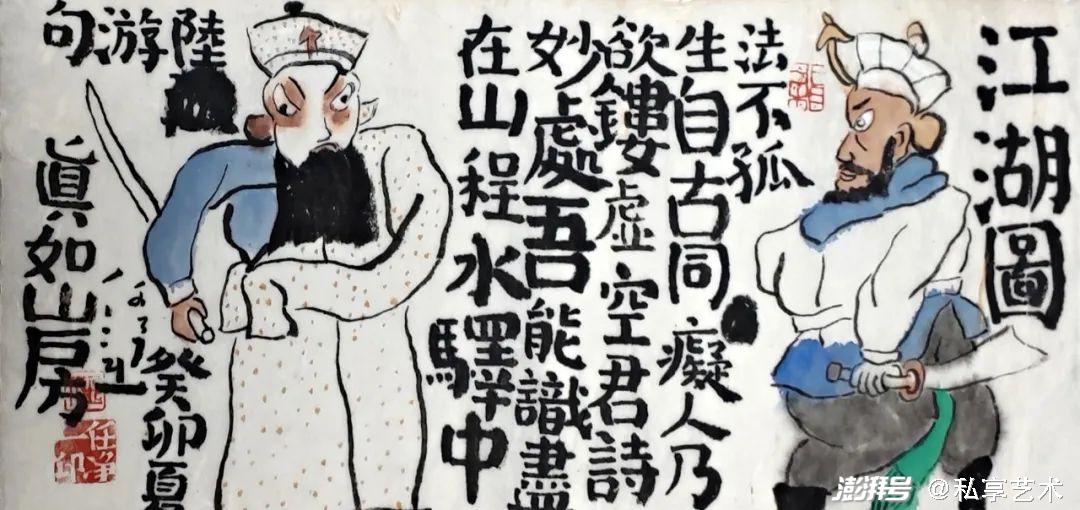 江湖圖
法不孤
生自古同癡人乃
欲鏤虛空君詩
妙處吾能識盡
在山程水驛中
陸游句
癸卯夏
眞如山房
任淨
澎湃号 @私享艺术